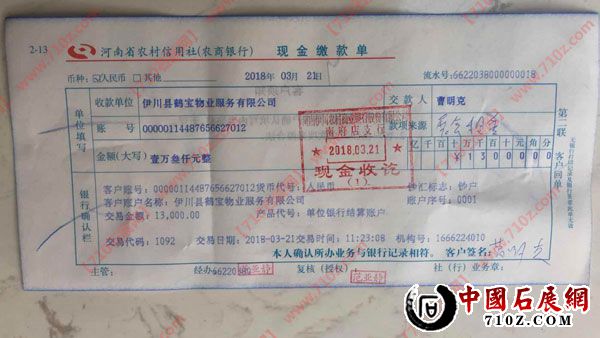 2-13 河南省农村信用社(农商银行) 现金缴款单
币种:☑人民币 □其他 2018年 03月 21日 流水号:6622038000000018
单位填写
收款单位 伊川县鹤宝物业服务有限公司 交款人 曹明克
账号 00000114487656627012 款项来源
金额(大写) 壹万叁仟元整 亿千百十万千百十元角分
¥1300000
南府店支行
2018.03.21
现金收讫
(1)
第二联 客户回单
银行确认栏
客户账号:00000114487656627012货币代号:人民币 钞汇标志:钞户
客户账户名称:伊川县鹤宝物业服务有限公司 账户序号:0001
交易金额:13,000.00 产品代号:单位银行结算账户
交易代码:1092 交易日期:2018-03-21交易时间:11:23:08 机构号:1666224010
本人确认所办业务与银行记录相符。 客户签名:
主管: 经办:6622038 复核(授权): 社(行)业务章:
范亚静
范亚静
中國石展網
710Z.com